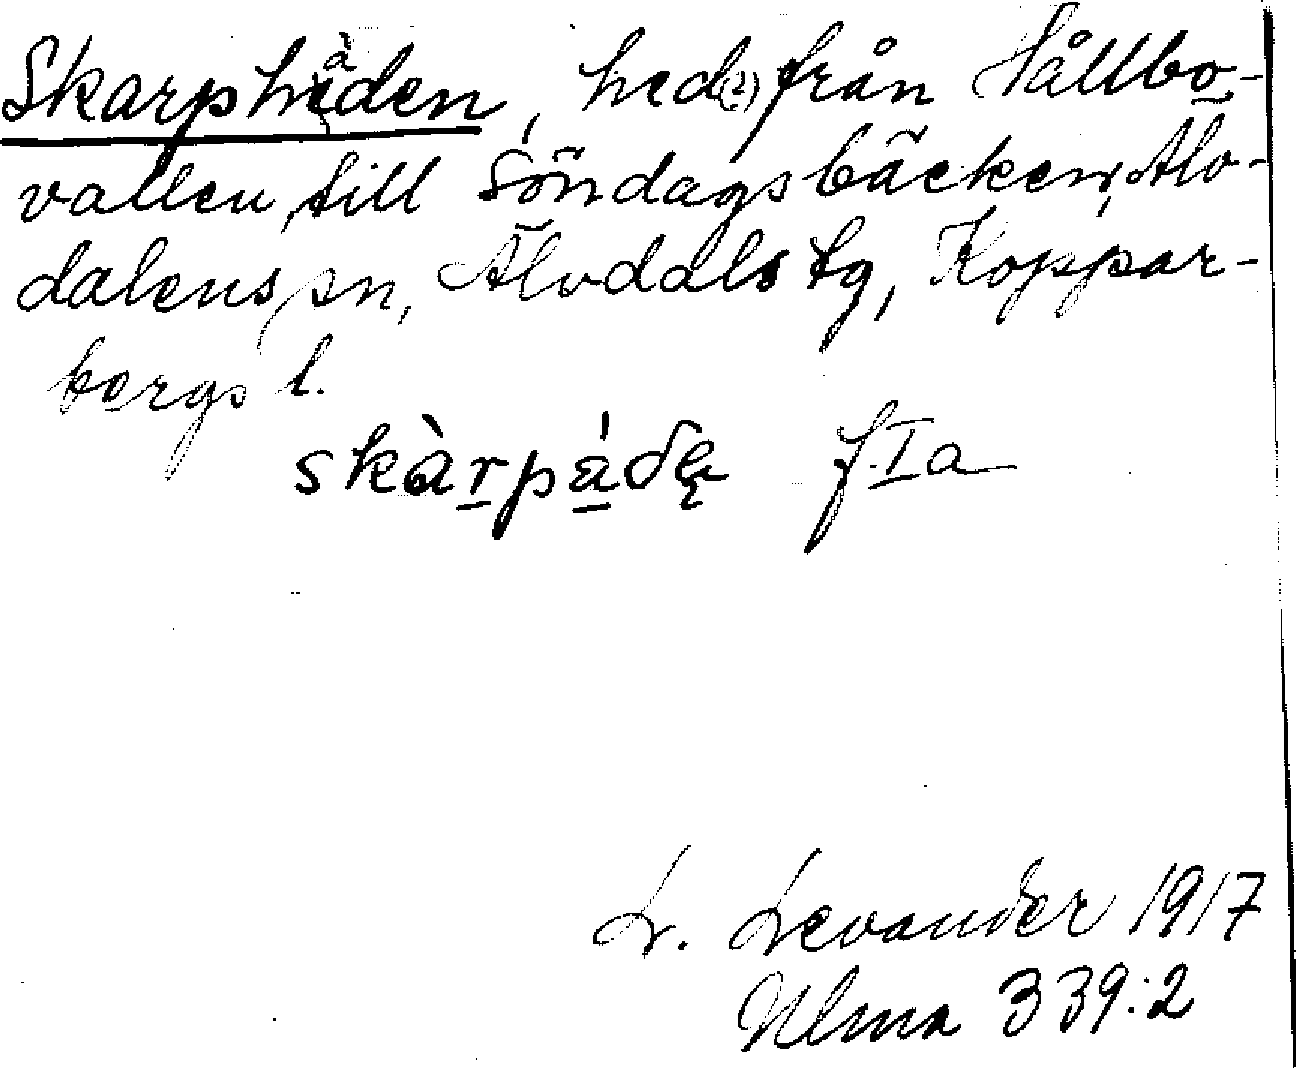 Skarpheden, hed(?) från Hållbo-
vallen till Söndagsbäcken, Älv-
dalens sn, Älvdals tg, Koppar-
bergs l.
skàrpáđę f. I a
L. Levander 1917
Ulma 339:2